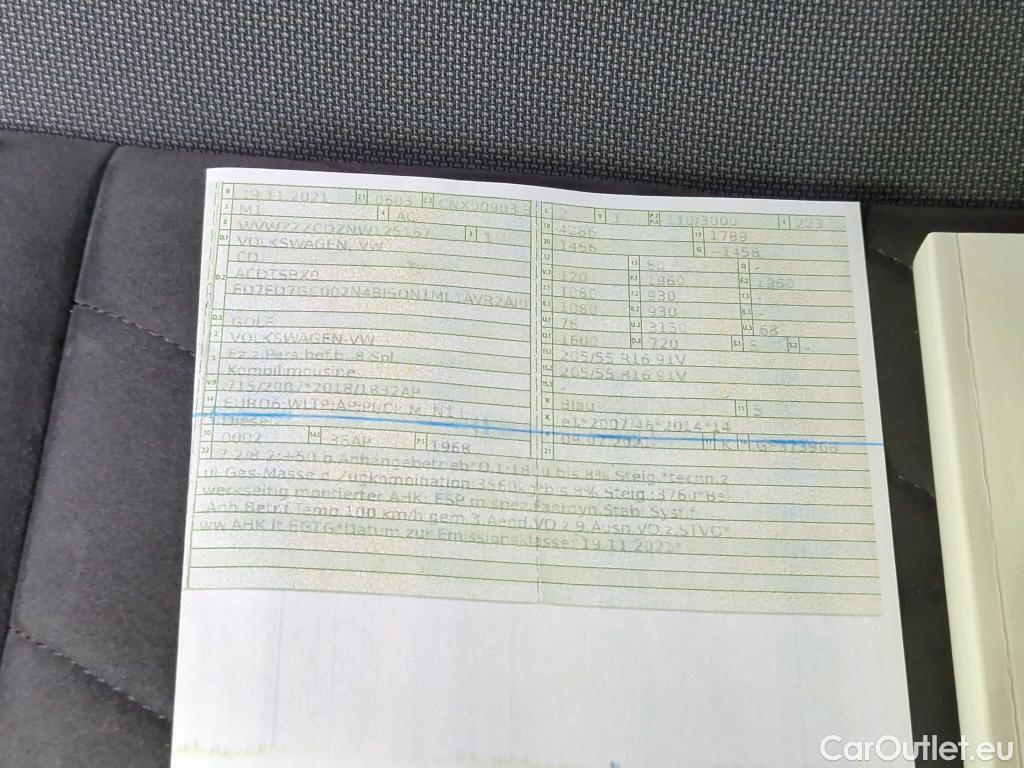 B 19.11.2021 2.1 0603 2.2 CNX00903
J M1 4 AC
E 3 1
D.1 VOLKSWAGEN, VW
CD
D.2 ACDTSRX0
D.3 GOLF
2 VOLKSWAGEN-VW
5 Fz.z.Pers.bef.b. 8 Spl.
Kombilimousine
V.9 715/2007*2018/1832AP
14
Diesel
10 0002 14.1 36AP P.1 1968
L 2 9 1 P.2 P.4 110/3000 T 223
18 4286 19 1789
20 1456 G -1458
12 - 13 80 Q -
V.7 120 F.1 1960 F.2 1960
7.1 1080 7.2 930 7.3 -
8.1 1080 8.2 930 8.3 -
U.1 76 U.2 3150 U.3 68
O.1 1600 O.2 720 S.1 5 S.2 -
15.1 205/55 R16 91V
15.2 205/55 R16 91V
15.3 -
R Blau 11 5
K e1*2007/46*2014*14
6 09.07.2021 17 K 16
21
22
ul.Ges-Masse d.Zugkombination
werkseitig montierter AHK: ESP m.spez.Faerdyn.Stabi.Syst.f.
Anh.Betr.f.Temp.100 km/h gem.3.Aend.VO.z.9.Ausn.VO.z.STVO*
ww.AHK lt. EGTG*Datum zur Emissionsklasse: 19.11.2021*
CarOutlet.eu